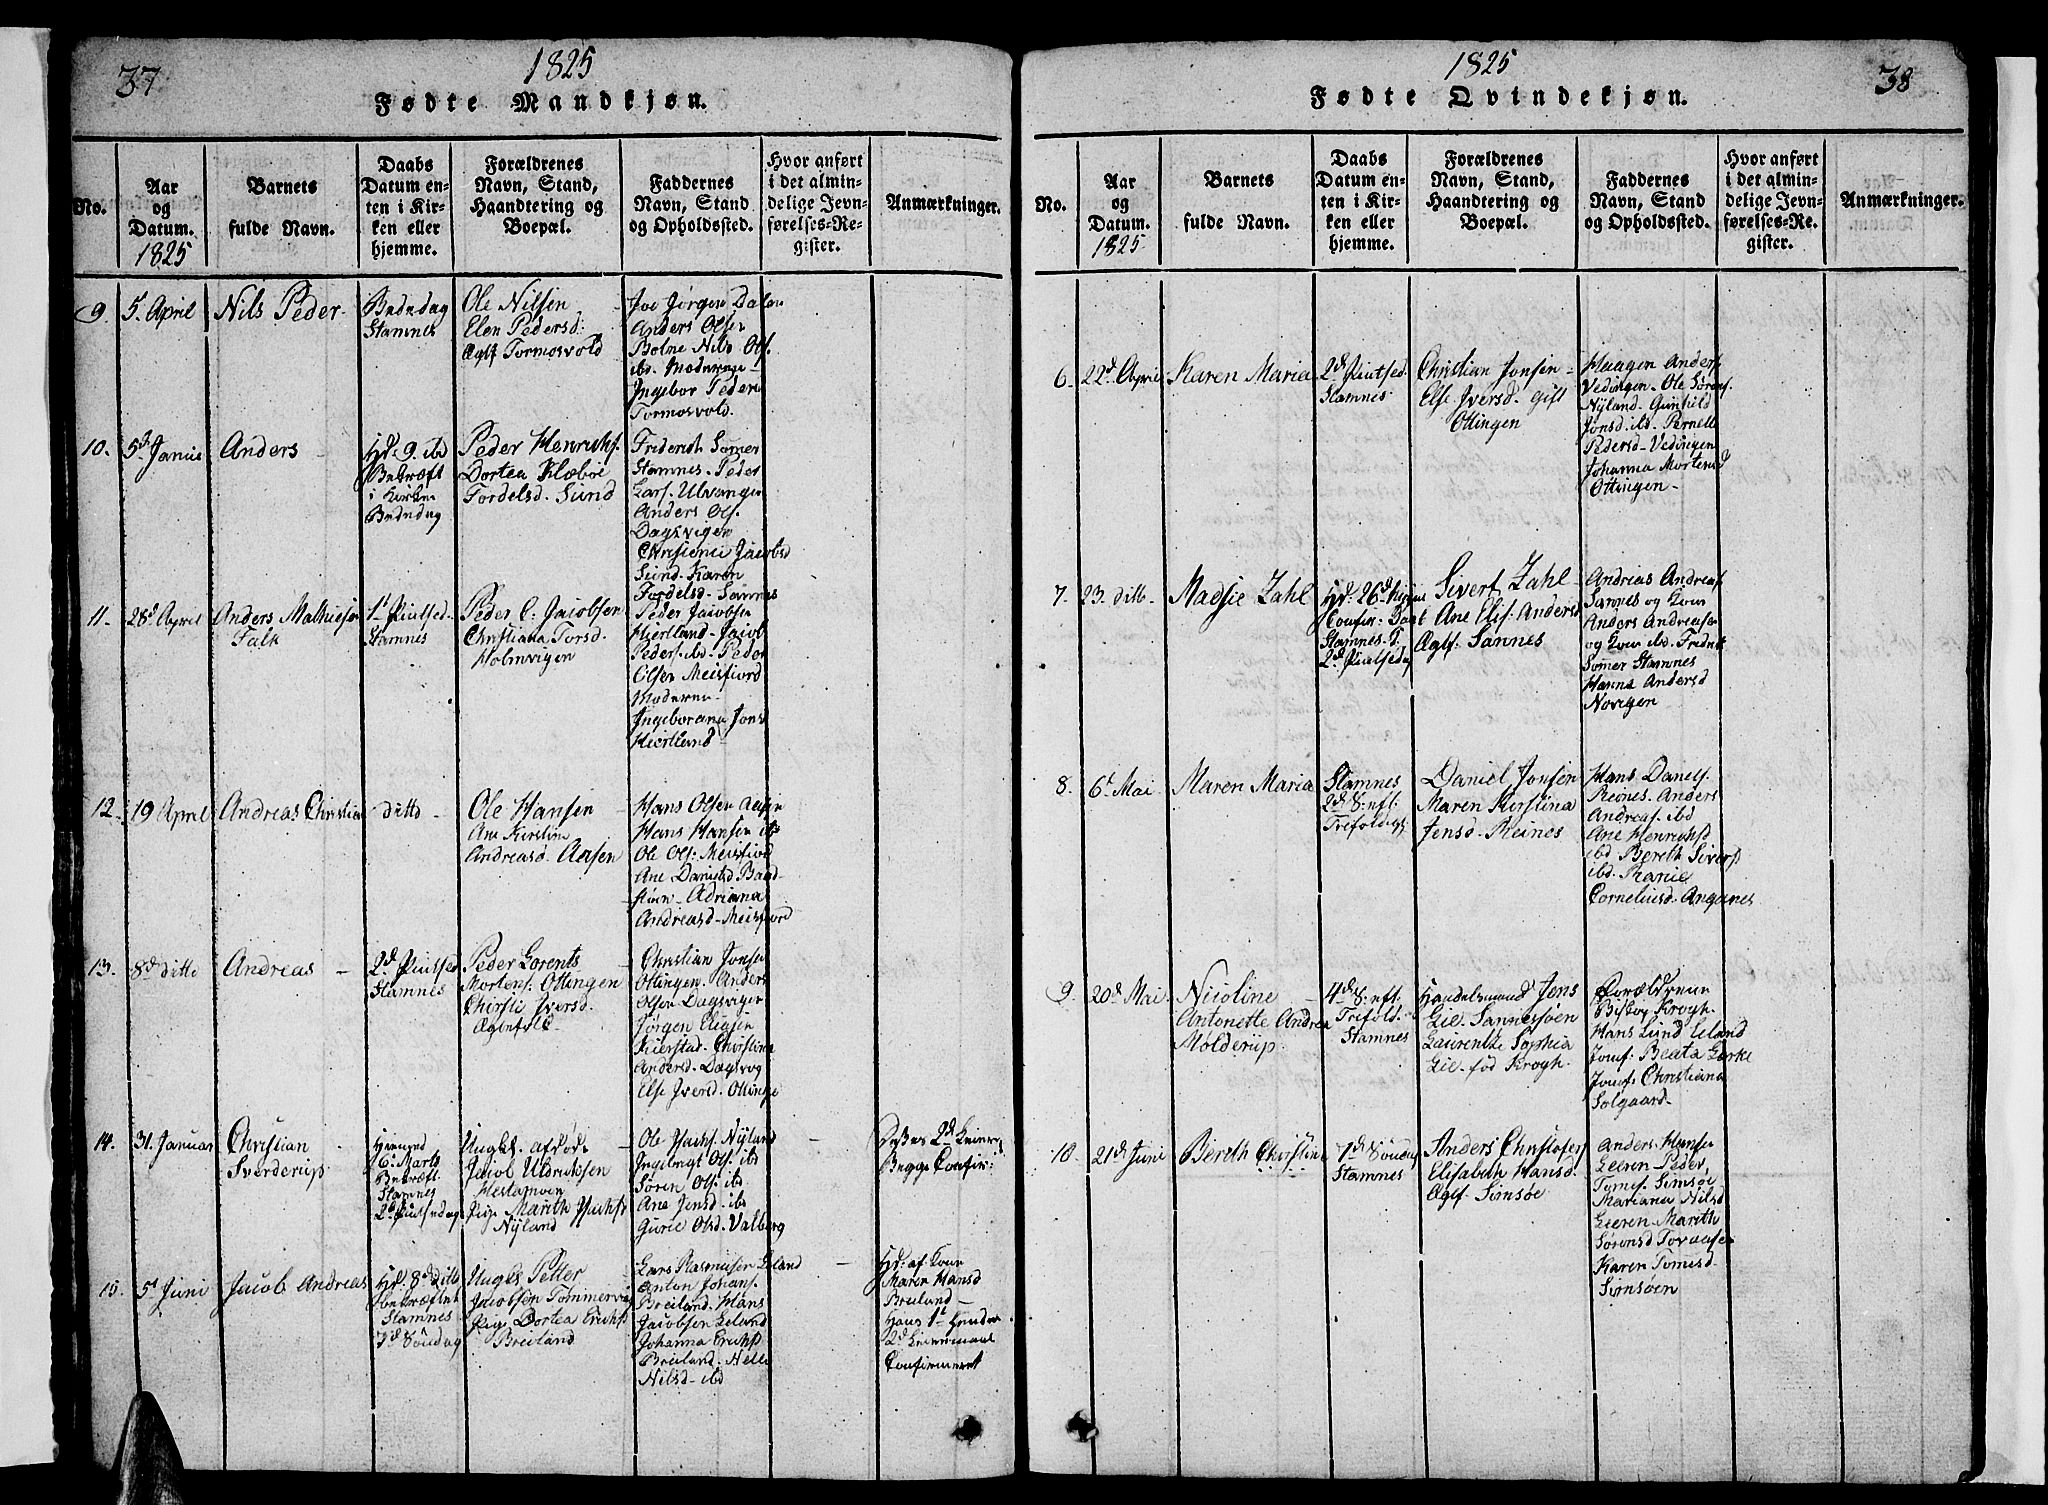 37
1825
Fødte Mandkjøn.
No.
Aar
og
Datum.
1825
Barnets
fulde Navn.
Daabs
Datum en-
ten i Kir-
ken eller
hjemme.
Forældrenes
Navn, Stand,
Haandtering og
Boepæl.
Faddernes
Navn, Stand
og Opholdssted.
Hvor anført
i det almin-
delige Jevn-
førelses-Re-
gister.
Anmærkninger.
9.
5. April
Nils Peder
Bededag
Stamnes
Ole Nilsen
Elen Pedersd:
Tormosvold
Joe Jørgen Dalen
Anders Olsen
Bolme Nils Ols.
ibd. Moderen
Ingebor Peder
Tormosvold.
10.
5te Janue
Anders
Hd. 9. ibd
Bekræft
i Kirken
Bededag
Peder Henrichs.
Dortea Klæboe
Tordelsd. Sund
Friderich Sømer
Stamnes. Peder
Lars. Ulvangen
Anders Ols.
Dagsvigen
Jacobsd
Sund. Karen
Tordelsd. Sannes
11.
28d April
Anders Mathiesen
Falk
1t Pintsed
Stamnes
Peder C. Jacobsen
Christiana Torsd.
Holmvigen
Peder Jacobsen
Hiertland. Jacob
Peders. ibd. Peder
Olsen Meisfiord
Moderen
Ingeborana Jonsd
Hiertland
12.
19 April
Andreas Christian
ditto
Ole Hansen
Ane Kirstine
Andreasd.
Hans Olsen
Hans Hansen ibd
Ole Ols: Meisfiord
Ane Danielsd
Adriana
Andreasd. Meisfiord
13.
8d ditto
Andreas
2d Pintsed
Stamnes
Peder Lorents
Mortens. Ottingen
Iversd.
Christian Jonsen
Ottingen. Anders
Olsen Dagsvigen
Jørgen
Christina
Andersd. Dagsvig
Else Iversd. Ottingen
14.
31. Januar
Christian
Sverderup
Hiemed
6. Marts
Bekræft.
Stamnes
2d Pintsedag
Jacob Uldrichsen
Hestamoen
Pige Marith
Nyland
Ole Nyland
Ingebrigt Ols. ibd
Søren Ols. ibd
Ane Jensd. ibd
Gurie Olsd. Valberg
2d
Begge Confir:
15.
5t Juni
Jacob Andreas
Hd. 8d ditto
bekræftet
Stamnes
7d Søndag
Petter
Jacobsen
Pige Dortea Erichsd
Breiland
Lars Rasmusen Leland
Anton Johans.
Breiland. Hans
Jacobsen Leland
Johanna Erichsd
Breiland. Nelle
Nilsd. ibd
Hd. af Kone
Maren Hansd
Breiland
Hans 1t hendes
2d Leiermaal
Confirmeret
1825
38
Fødte Qvindekjøn.
No.
Aar
og
Datum.
1825
Barnets
fulde Navn.
Daabs
Datum en-
ten i Kir-
ken eller
hjemme.
Forældrenes
Navn, Stand,
Haandtering og
Boepæl.
Faddernes
Navn, Stand
og Opholdssted.
Hvor anført
i det almin-
delige Jevn-
førelses-Re-
gister.
Anmærkninger.
6.
22d April
Karen Maria
2d Pintsed.
Stamnes.
Christian Jonsen
Else Iversd. gift
Ottingen
Haagen Anders.
Vedingen. Ole Sørens.
Nyland. Gunhild
Jonsd. ibd. Pernell
Pedersd. Vedingen
Johanna Mortensd
Ottingen
7.
23. ditto
Madsie Zahl
Hd. 26d
Stamnes. D.
2d Pintsedag
Sivert Zahl
Ane Elis. Andersd
Sannes
Andreas Andreas.
Sannes og Kone
Anders Andreasen
og Kone ibd. Fridrik
Sømer Stamnes
Hanna Andersd
Novigen
8.
6t Mai
Maren Maria
Stamnes
2d S: eft.
Trefoldigh.
Daniel Jonsen
Maren Kirstina
Jensd. Reines
Hans Daniels.
Reines. Anders
Andreas. ibd
Ane Henrichsd
ibd Bereth Sivers.
ibd.
Corneliusd. Anganes
9.
20d Mai
Nicoline
Antonette Andrea
Molderup
4d S: eft.
Trefold.
Stamnes
Handelsmand Jens
Gie. Sannessøen
Laurentze Sophia
Gie. fød Krogh.
Forældrene
Biskop Krogh.
Hans Lund Leland
Jomf. Beata Gierke
Jomf. Christiana
Solgaard
10.
21d Juni
Bereth Christine
7d Søndag
Stamnes
Anders Christofers.
Elisabeth Hansd.
Simsøe
Anders Hansen
Leeren. Peder
Tomes. Simsøe
Mariana Nilsd
Leeren. Marith
Sørensd Toraasen
Karen Tomesd.
Simsøen